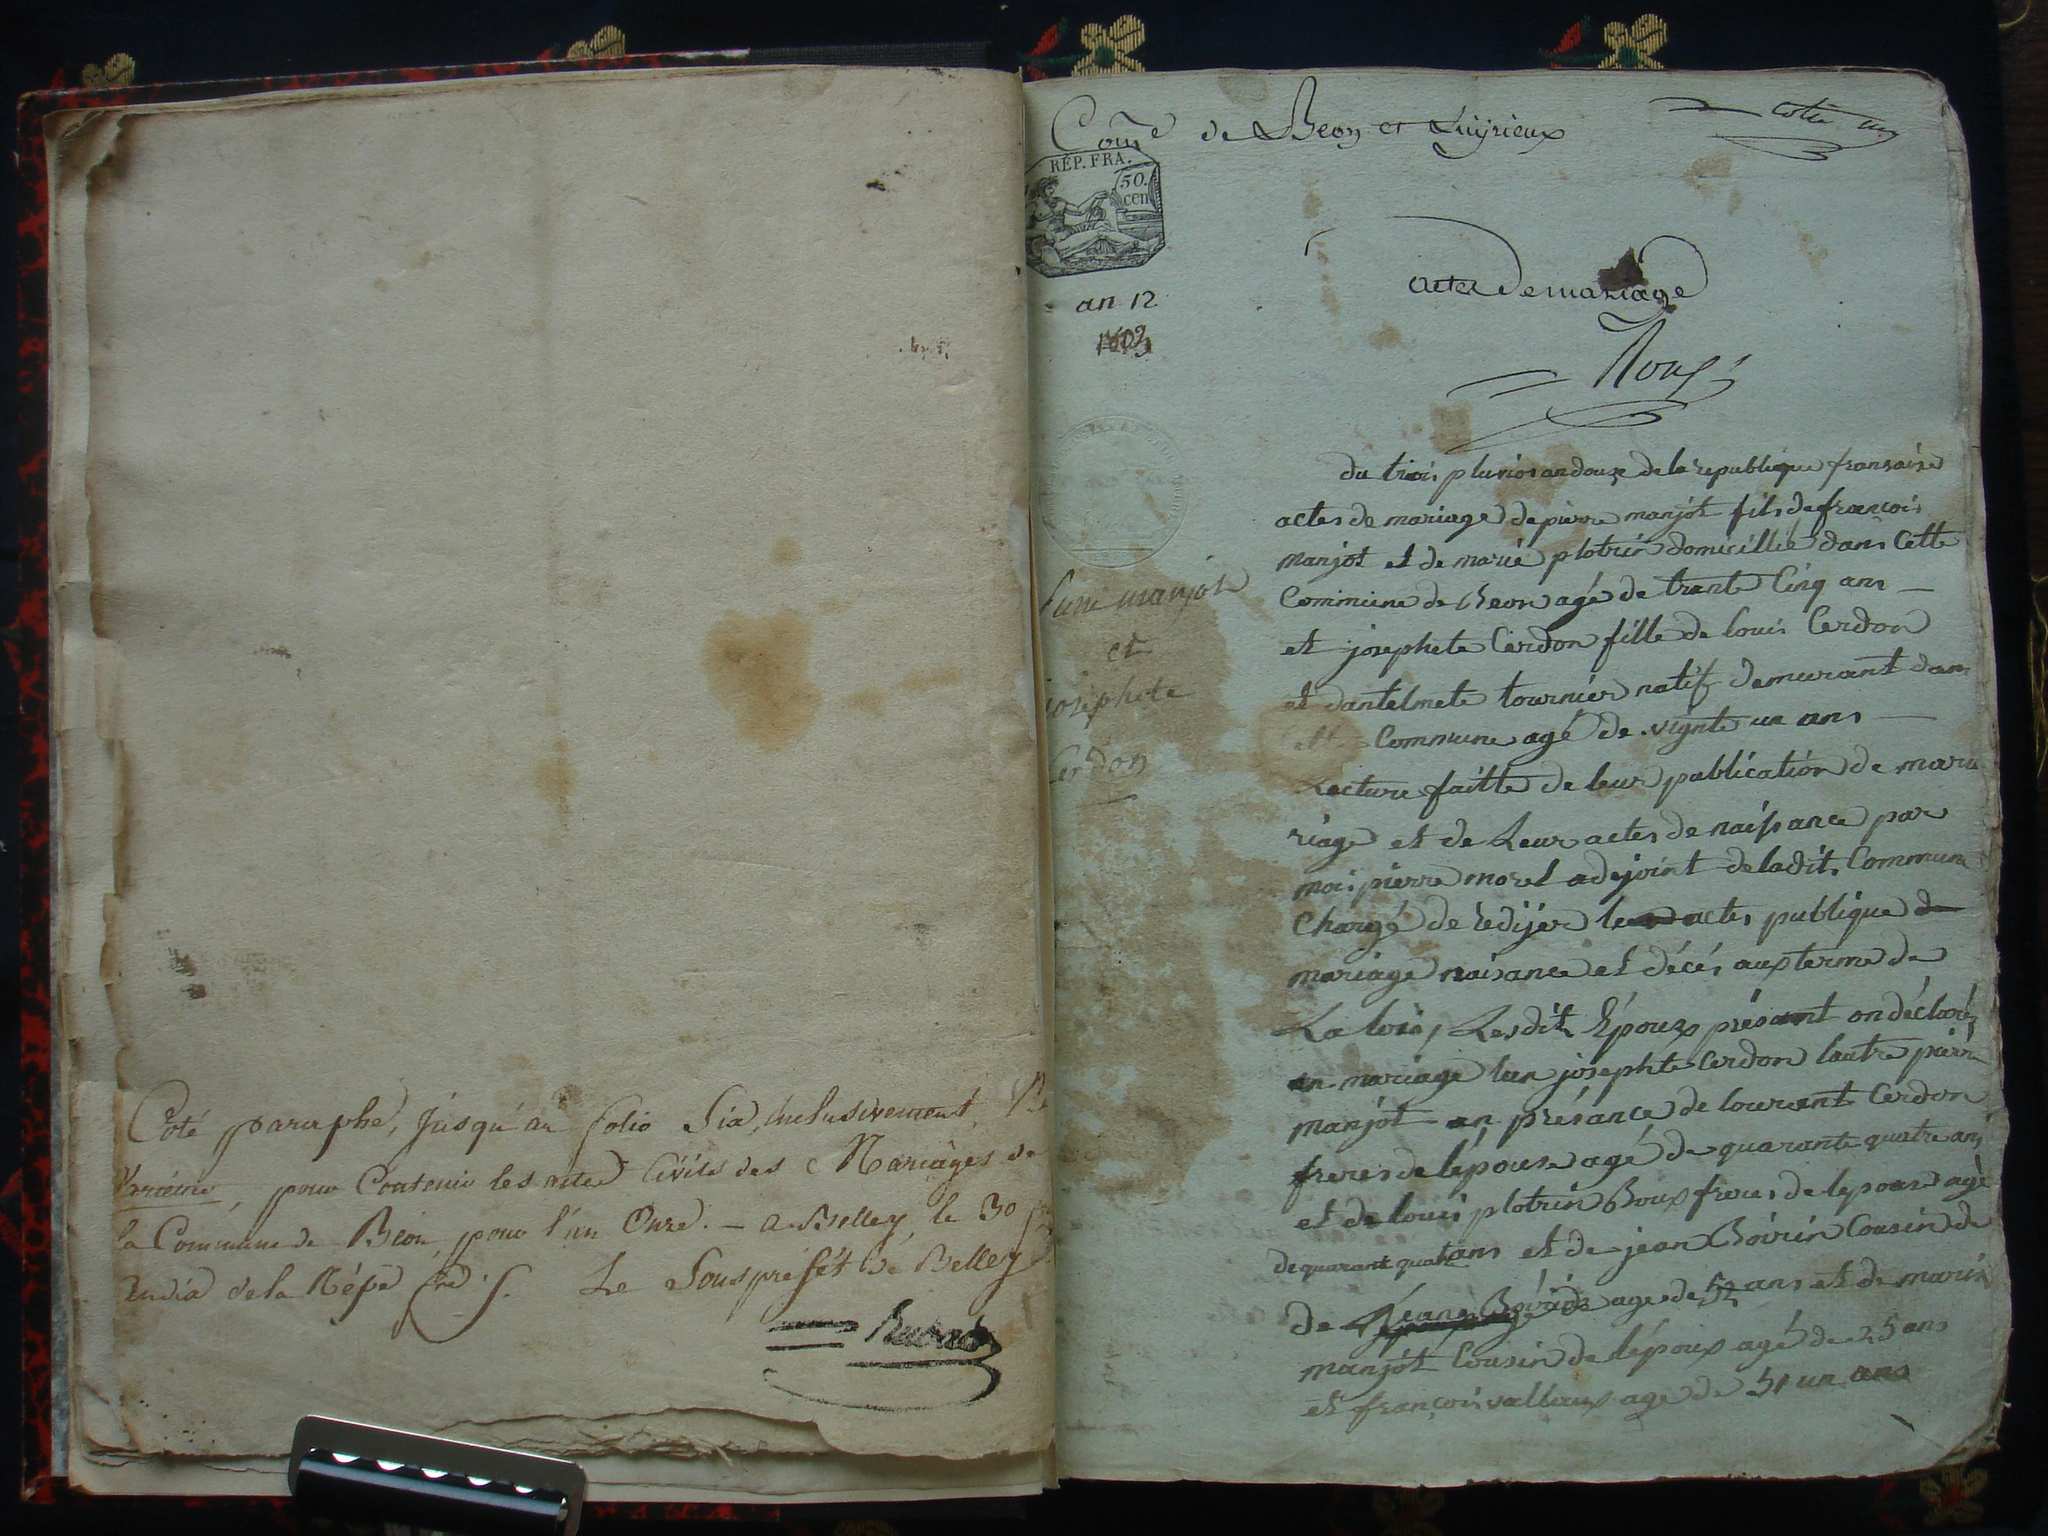 Coté paraphé, jusqu'au folio Six, inclusivement,
pour Contenir les actes Civils des Mariages de
la Commune de Beon, pour l'an Onze. - a Belley, le 30
de la Rép. Le Souspréfét de Belley
Come de Beon et Luyrieux
RÉP. FRA.
50.
cen
an 12
actes de mariage
du trois pluvios an douze de la republique fransaise
manjot
et
josephete
Cerdon
actes de mariage de pierre manjot fils de françois
manjot et de marie plotrin domicillié dans Cette
Commune de Beon agé de trante Cinq ans
et josephete Cerdon fille de louis Cerdon
et dantelmete tournier natif demurant dans
Commune agé de vignte un ans
Lecture faitte de leur publication de mari
riage et de Leur actes de naissance par
moi pierre morel adejoint de ladit Commune
Chargé de rédijer les actes publique de
mariage naisance et décés aux terme de
La loix, Lesdit Époux présant on déclaréz
en mariage lun josephte Cerdon lautre pierre
manjot en présance de lourent Cerdon
freres de lépouse agé de quarante quatre ans
et de louis plotrin Boux freres de lepouse agé
de quarant quatr ans et de jean Boirin Cousin de
de agé de 52 ans et de maris
manjot Cousin de lépoux agé de 25 ans
et françois vallaux age de 51 un ans